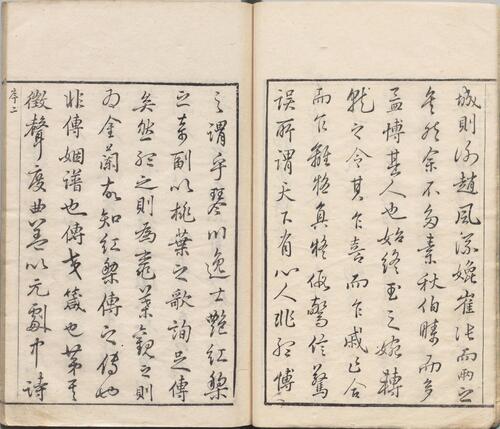 城則洵趙風流嫓崔張而兩之
矣然余不多素秋伯疇而多
孟博其人也始終玉之婉轉
就之令其乍喜而乍戚乍合
而乍離將真將假驚信驚
誤所謂天下有心人非孟博
之謂乎琴川逸士艷紅梨
之奏副以桃葉之歌詢足傳
矣然之則為葉觀之則
為金蘭故知紅梨傳之傳也
非傳姻譜也傳交箴也第其
徵聲度曲蓋以元劇中詩
序二